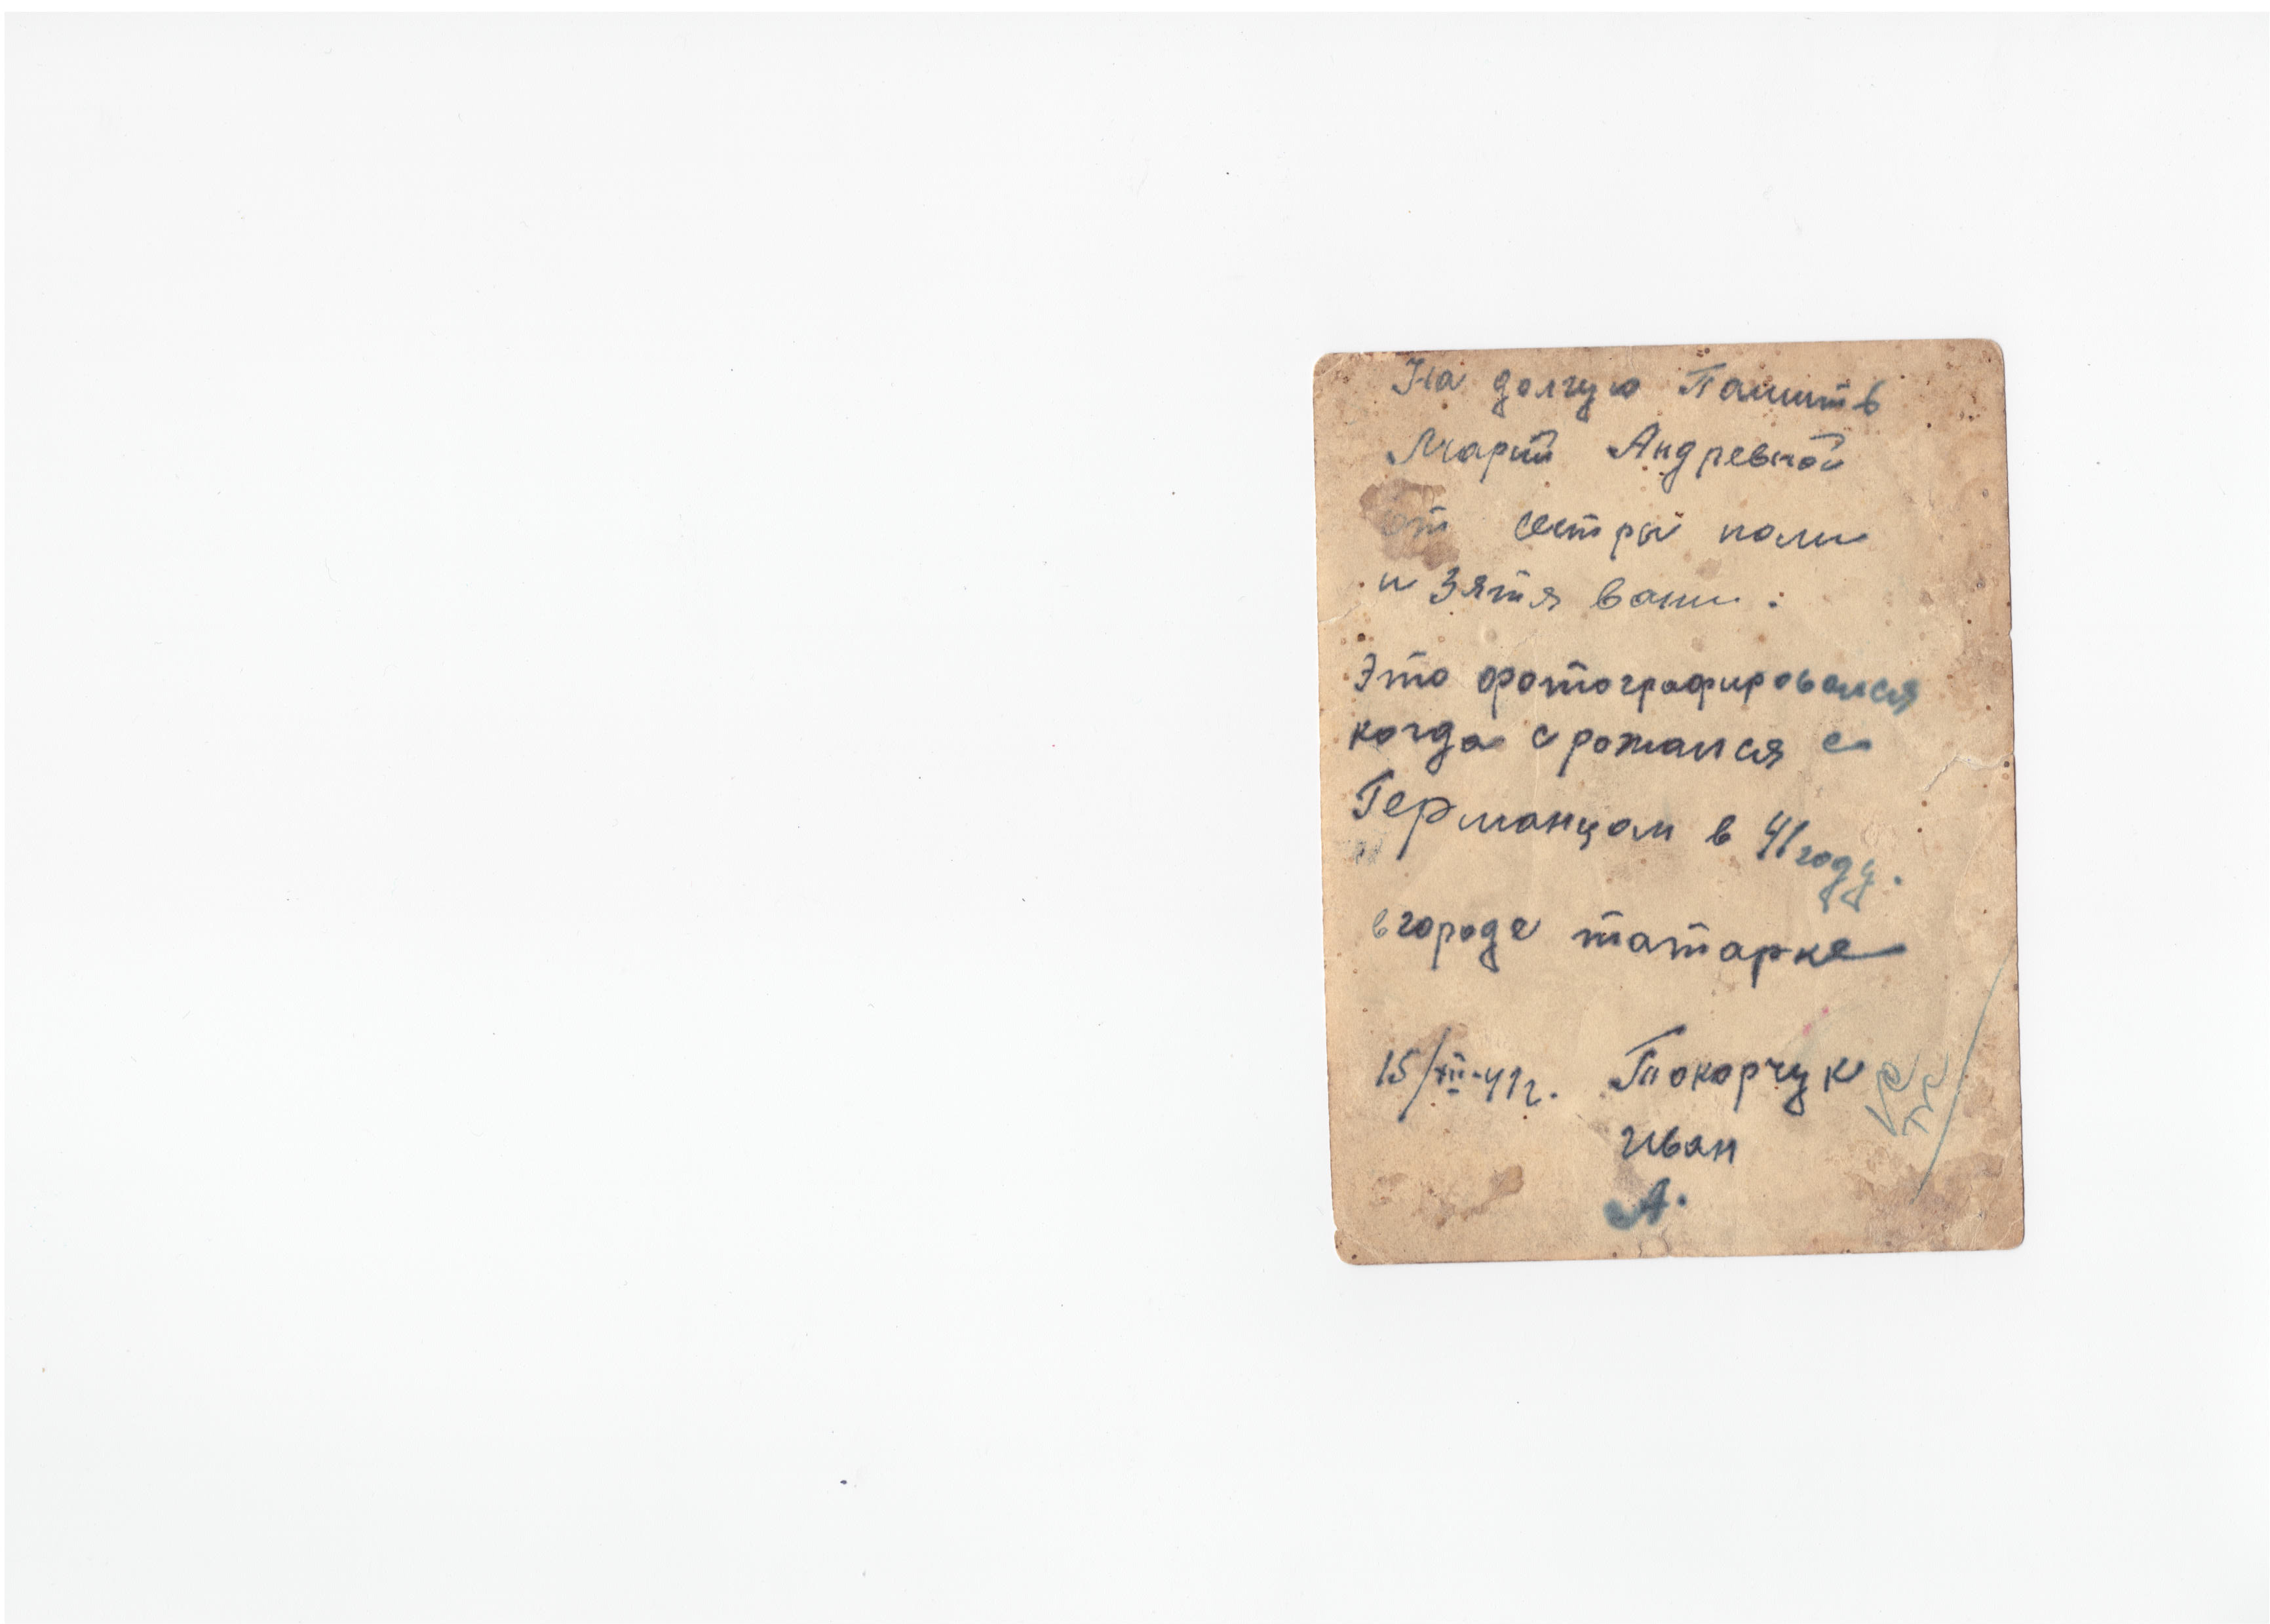 На долгую Памить
Марий Андревной
от сестры поли
и Зятя вани.
Это фотографировался
когда срожался с
Германцом в 41 году.
в городе татарке
15/XII-41г. Токорчук
Иван
А.